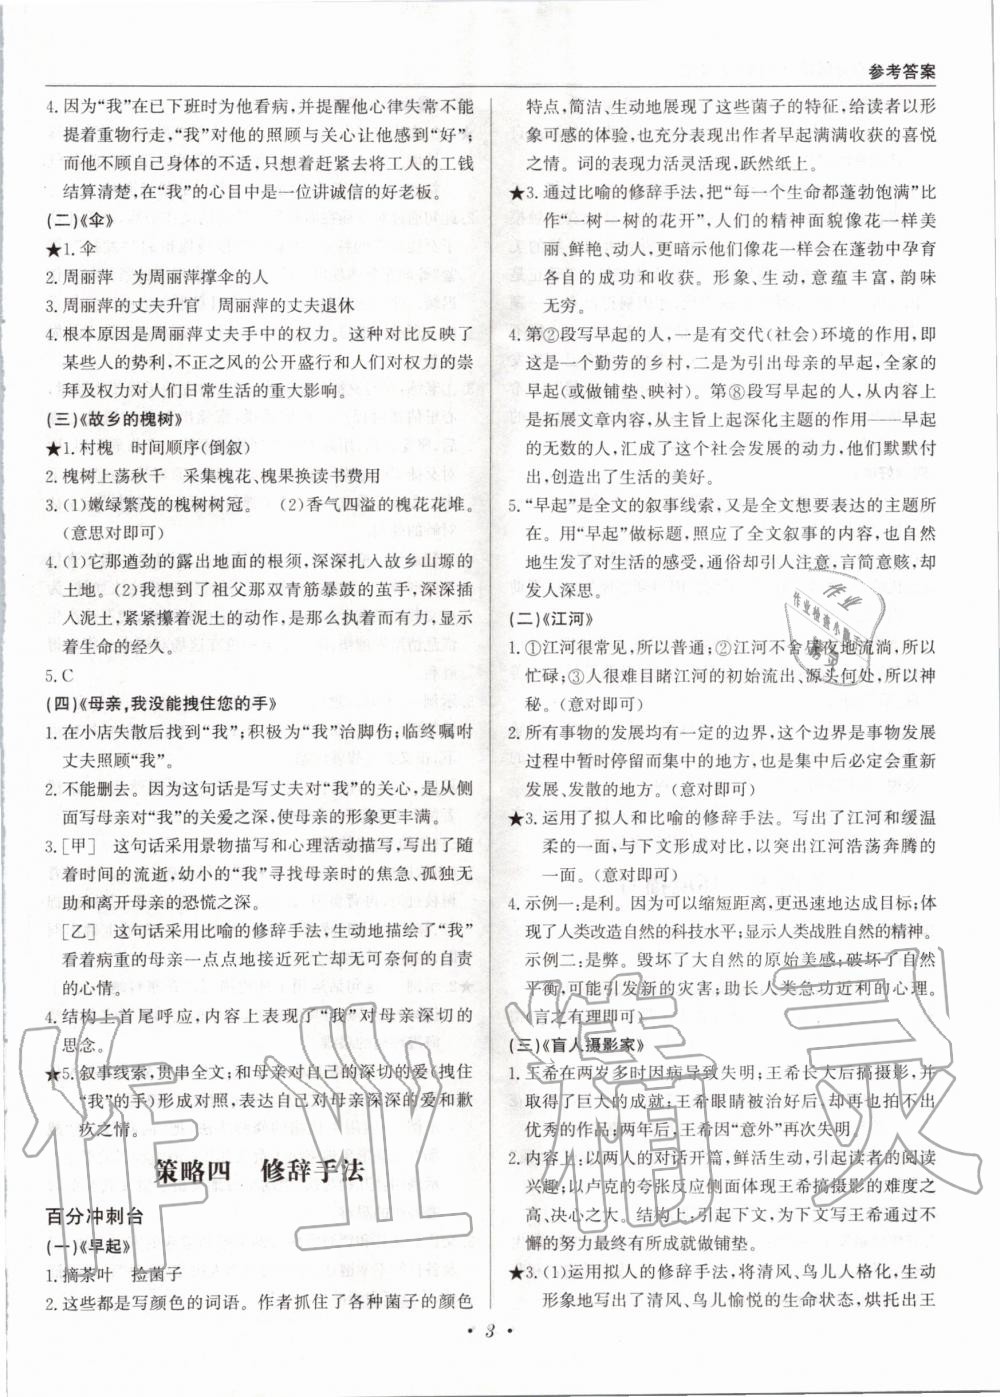 参考答案
4. 因为“我”在已下班时为他看病，并提醒他心律失常不能
提着重物行走，“我”对他的照顾与关心让他感到“好”；
而他不顾自己身体的不适，只想着赶紧去将工人的工钱
结算清楚，在“我”的心目中是一位讲诚信的好老板。
(二)《伞》
★1. 伞
2. 周丽萍　为周丽萍撑伞的人
3. 周丽萍的丈夫升官　周丽萍的丈夫退休
4. 根本原因是周丽萍丈夫手中的权力。这种对比反映了
某些人的势利，不正之风的公开盛行和人们对权力的崇
拜及权力对人们日常生活的重大影响。
(三)《故乡的槐树》
★1. 村槐　时间顺序(倒叙)
2. 槐树上荡秋千　采集槐花、槐果换读书费用
3. (1)嫩绿繁茂的槐树树冠。　(2)香气四溢的槐花花堆。
(意思对即可)
4. (1)它那遒劲的露出地面的根须，深深扎入故乡山塬的
土地。(2)我想到了祖父那双青筋暴鼓的茧手，深深插
入泥土，紧紧攥着泥土的动作，是那么执着而有力，显示
着生命的经久。
5. C
(四)《母亲，我没能拽住您的手》
1. 在小店失散后找到“我”；积极为“我”治脚伤；临终嘱咐
丈夫照顾“我”。
2. 不能删去。因为这句话是写丈夫对“我”的关心，是从侧
面写母亲对“我”的关爱之深，使母亲的形象更丰满。
3. [甲]　这句话采用景物描写和心理活动描写，写出了随
着时间的流逝，幼小的“我”寻找母亲时的焦急、孤独无
助和离开母亲的恐慌之深。
[乙]　这句话采用比喻的修辞手法，生动地描绘了“我”
看着病重的母亲一点点地接近死亡却无可奈何的自责
的心情。
4. 结构上首尾呼应，内容上表现了“我”对母亲深切的
思念。
★5. 叙事线索，贯串全文；和母亲对自己的深切的爱(拽住
“我”的手)形成对照，表达自己对母亲深深的爱和歉
疚之情。
策略四　修辞手法
百分冲刺台
(一)《早起》
1. 摘茶叶　捡菌子
2. 这些都是写颜色的词语。作者抓住了各种菌子的颜色
特点，简洁、生动地展现了这些菌子的特征，给读者以形
象可感的体验，也充分表现出作者早起满满收获的喜悦
之情。词的表现力活灵活现，跃然纸上。
★3. 通过比喻的修辞手法，把“每一个生命都蓬勃饱满”比
作“一树一树的花开”，人们的精神面貌像花一样美
丽、鲜艳、动人，更暗示他们像花一样会在蓬勃中孕育
各自的成功和收获。形象、生动，意蕴丰富，韵味
无穷。
4. 第②段写早起的人，一是有交代(社会)环境的作用，即
这是一个勤劳的乡村，二是为引出母亲的早起，全家的
早起(或做铺垫、映衬)。第⑧段写早起的人，从内容上
是拓展文章内容，从主旨上起深化主题的作用——早起
的无数的人，汇成了这个社会发展的动力，他们默默付
出，创造出了生活的美好。
5. “早起”是全文的叙事线索，又是全文想要表达的主题所
在。用“早起”做标题，照应了全文叙事的内容，也自然
地生发了对生活的感受，通俗却引人注意，言简意赅，却
发人深思。
(二)《江河》
1. ①江河很常见，所以普通；②江河不舍昼夜地流淌，所以
忙碌；③人很难目睹江河的初始流出、源头何处，所以神
秘。(意对即可)
2. 所有事物的发展均有一定的边界，这个边界是事物发展
过程中暂时停留而集中的地方，也是集中后必定会重新
发展、发散的地方。(意对即可)
★3. 运用了拟人和比喻的修辞手法。写出了江河和缓温
柔的一面，与下文形成对比，以突出江河浩荡奔腾的
一面。(意对即可)
4. 示例一：是利。因为可以缩短距离，更迅速地达成目标；体
现了人类改造自然的科技水平；显示人类战胜自然的精神。
示例二：是弊。毁坏了大自然的原始美感；破坏自然平
衡，可能引发新的灾害；助长人类急功近利的心理。
(言之有理即可)
(三)《盲人摄影家》
1. 王希在两岁多时因病导致失明；王希长大后搞摄影，并
且取得了大的成就；王希眼睛被治好后，却没有拍出
优秀的作品；两年后，王希因“意外”再次失明。
2. 内容上：以两人的对话开篇，鲜活生动，引起读者的阅读
兴趣；以卢克的夸张反应侧面体现王希搞摄影的难度之
高、决心之大。结构上：引起下文，为下文写王希通过不
懈的努力最终有所成就做铺垫。
★3. (1)运用拟人的修辞手法，将清风、鸟儿人格化，生动
形象地写出了清风、鸟儿愉悦的生命状态，烘托出王
· 3 ·
作业精灵
作业
作业检查小助手